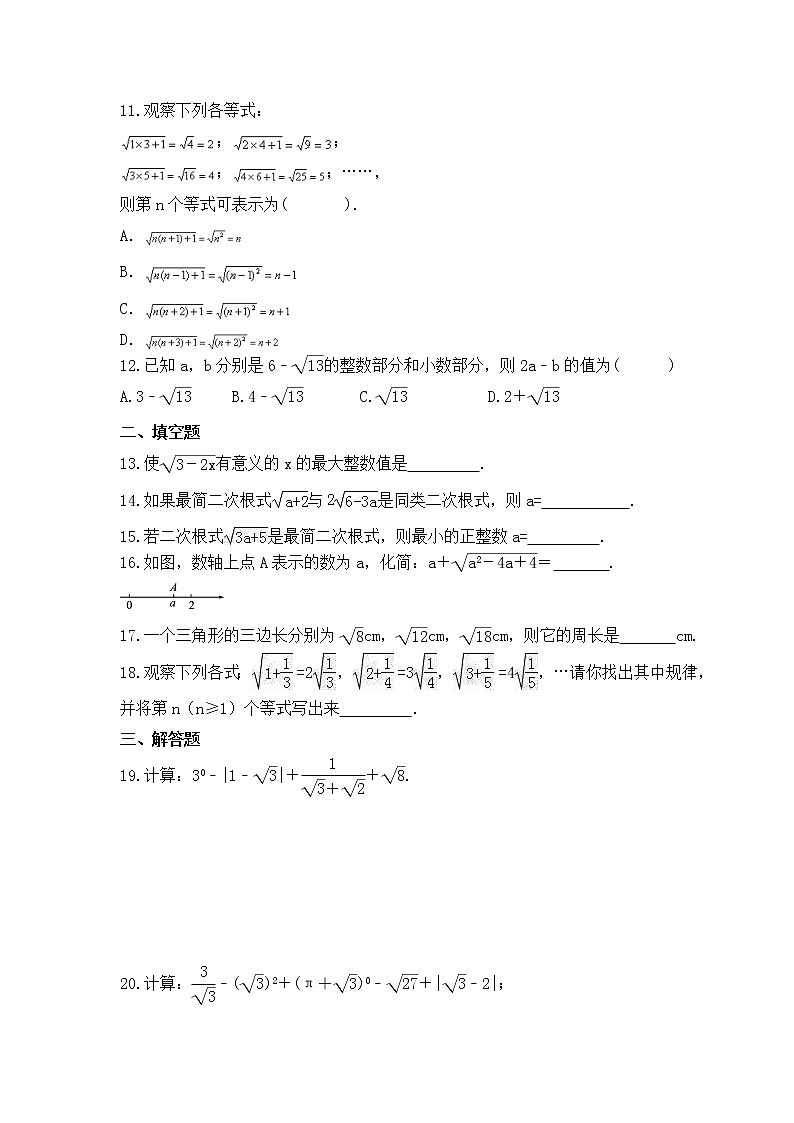 11.观察下列各等式:
√(1×3+1)=√4=2; √(2×4+1)=√9=3;
√(3×5+1)=√16=4; √(4×6+1)=√25=5; ……,
则第n个等式可表示为( ).
A. √(n(n+1)+1)=√(n²)=n
B. √(n(n-1)+1)=√((n-1)²)=n-1
C. √(n(n+2)+1)=√((n+1)²)=n+1
D. √(n(n+3)+1)=√((n+2)²)=n+2
12.已知a,b分别是6﹣√13的整数部分和小数部分,则2a﹣b的值为( )
A.3﹣√13 B.4﹣√13 C.√13 D.2+√13
二、填空题
13.使√(3-2x)有意义的x的最大整数值是_________.
14.如果最简二次根式√(a+2)与2√(6-3a)是同类二次根式,则a=___________.
15.若二次根式√(3a+5)是最简二次根式,则最小的正整数a=_________.
16.如图,数轴上点A表示的数为a,化简:a+√(a²-4a+4)=_______.
A
0 a 2
17.一个三角形的三边长分别为√8cm,√12cm,√18cm,则它的周长是_______cm.
18.观察下列各式:√(1+1/3)=2√(1/3),√(2+1/4)=3√(1/4),√(3+1/5)=4√(1/5),…请你找出其中规律,
并将第n(n≥1)个等式写出来_________.
三、解答题
19.计算:3⁰﹣|1﹣√3|+1/(√3+√2)+√8.
20.计算:3/√3﹣(√3)²+(π+√3)⁰﹣√27+|√3﹣2|;